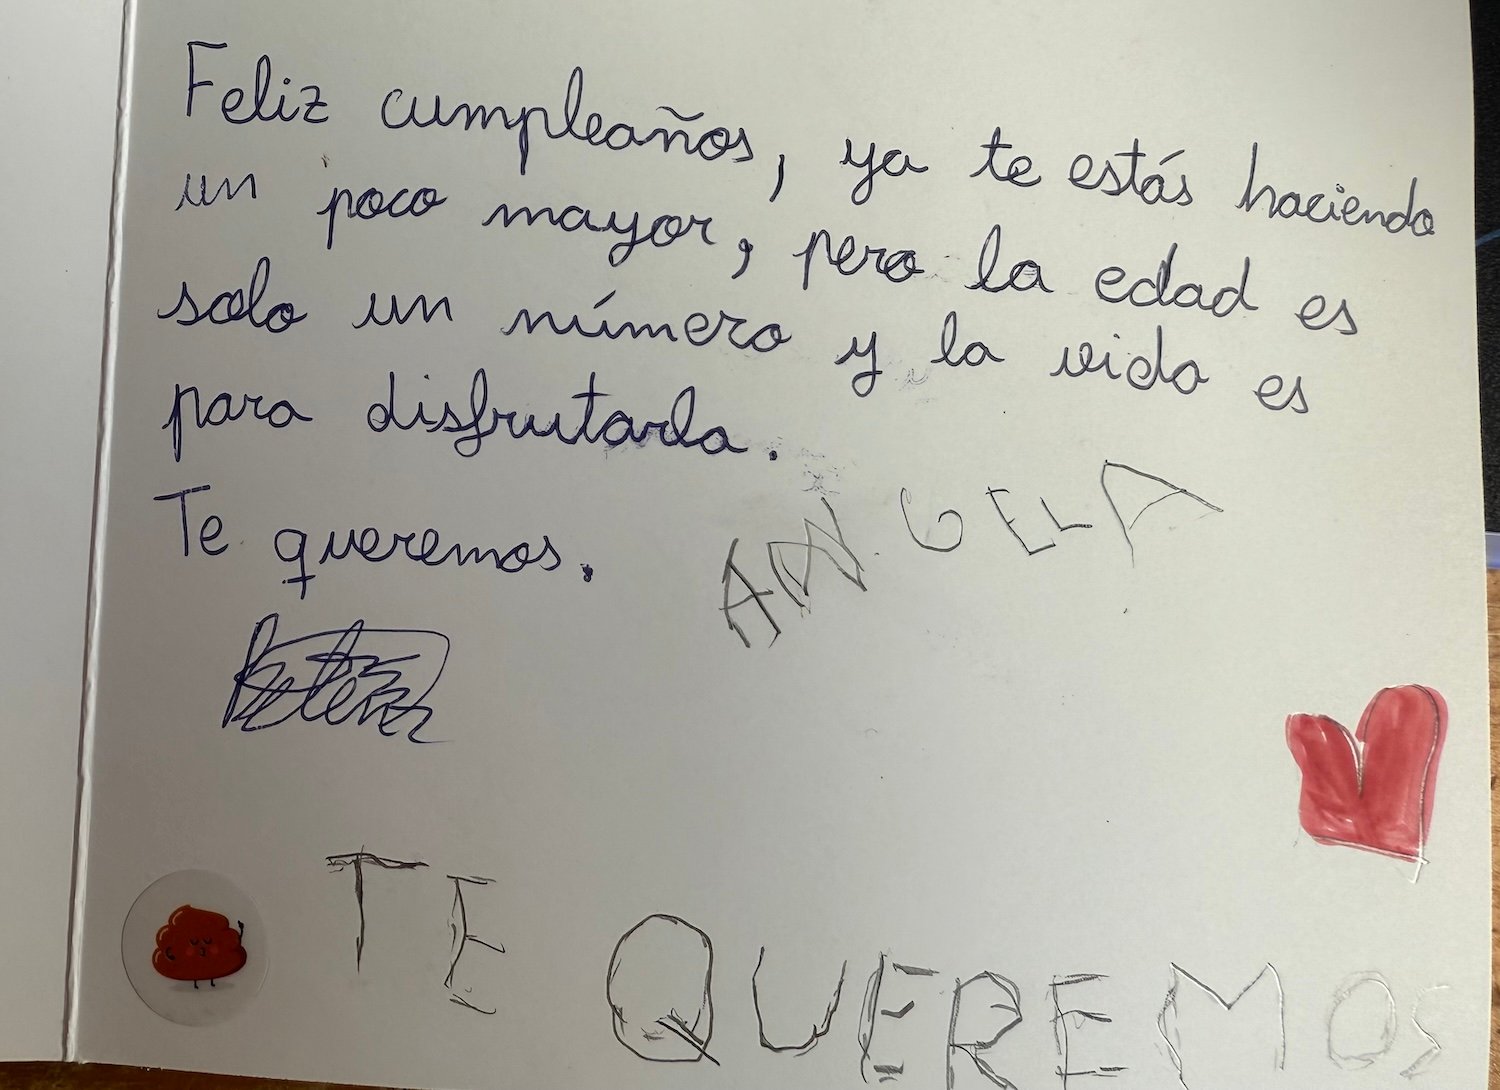 Feliz cumpleaños, ya te estás haciendo
un poco mayor, pero la edad es
solo un número y la vida es
para disfrutarla.
Te queremos.
ANGELA
TE QUEREMOS